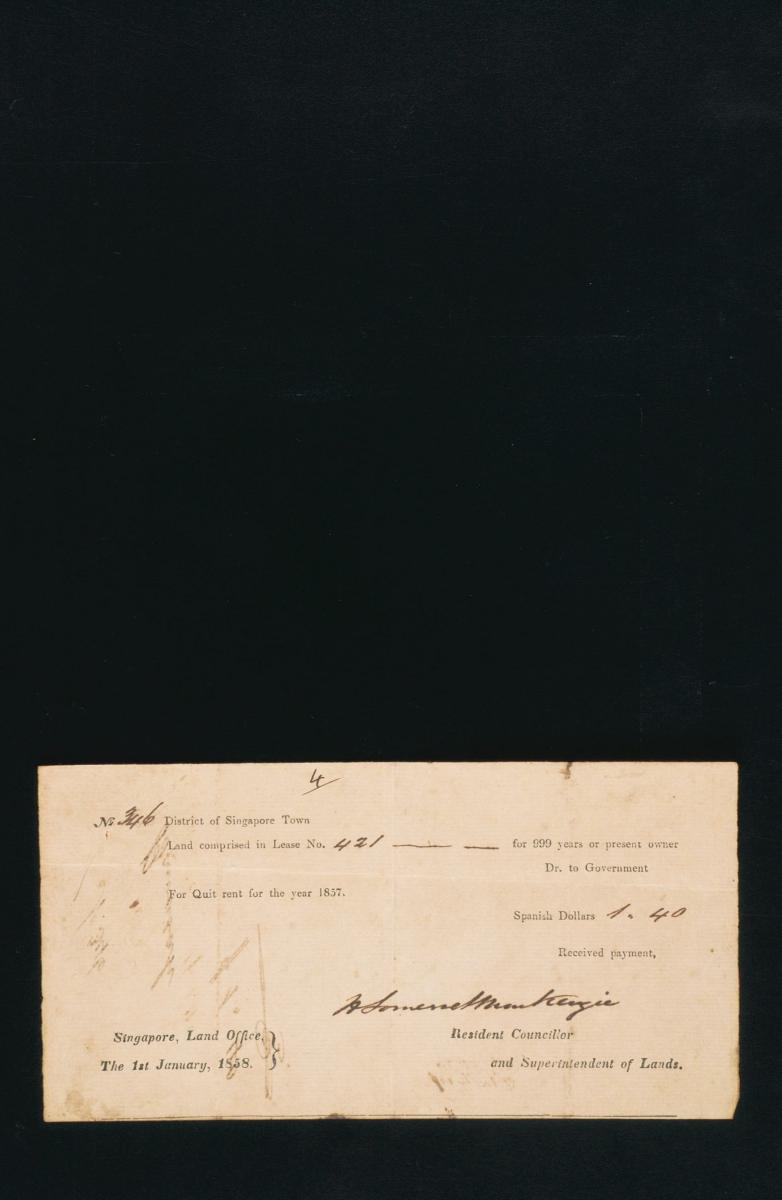 4
No. 346 District of Singapore Town
Land comprised in Lease No. 421 — — for 999 years or present owner
Dr. to Government
For Quit rent for the year 1857.
Spanish Dollars 1. 40
Received payment,
H Somerset Mackenzie
Singapore, Land Office, } Resident Councillor
The 1st January, 1858. and Superintendent of Lands.